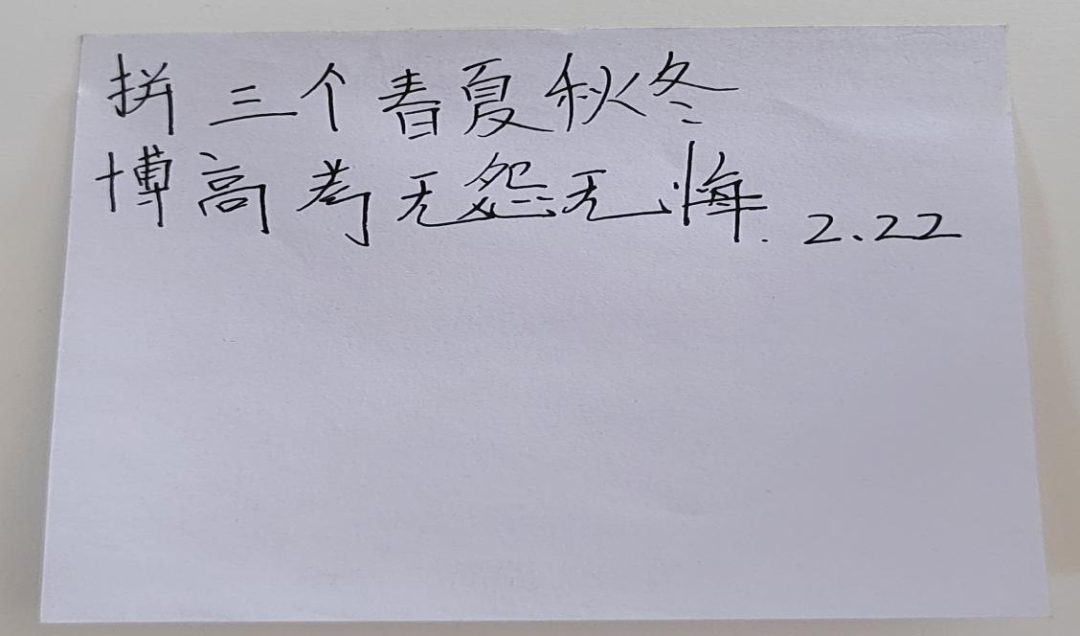 拼三个春夏秋冬
博高考无怨无悔. 2.22